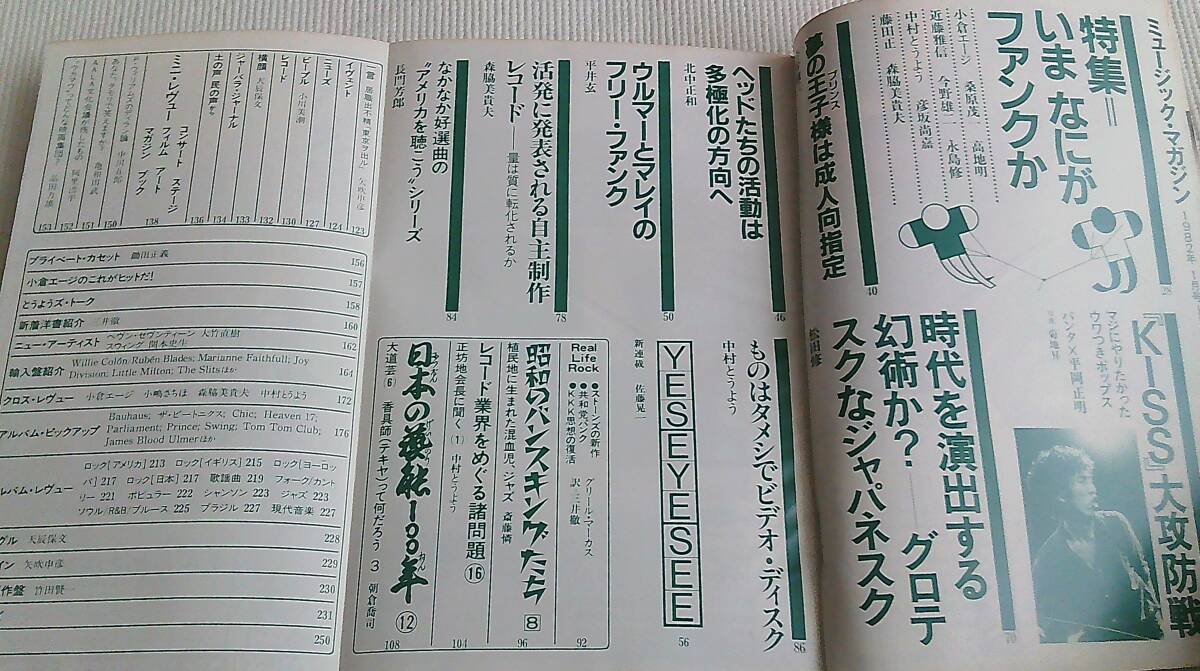 ミュージック・マガジン 1982年1月号
特集＝
いまなにが
ファンクか
28
小倉エージ 桑原茂一 高地明
近藤雅信 今野雄二 永島修
中村とうよう 彦坂尚嘉
藤田正 森脇美貴夫
プリンス
夢の王子様は成人向指定
40
ヘッドたちの活動は
多極化の方向へ
北中正和
46
ウルマーとマレイの
フリー・ファンク
平井玄
50
活発に発表される自主制作
レコード——量は質に転化されるか
森脇美貴夫
78
なかなか好選曲の
“アメリカを聴こう”シリーズ
長門芳郎
84
『KISS』大攻防戦
マジにやりたかった
ウワつきポップス
パンタ×平岡正明
写真・菊地昇
時代を演出する
幻術か？——グロテ
スクなジャパネスク
松田修
70
ものはタメシでビデオ・ディスク
中村とうよう
86
YESEYESEE
新連載 佐藤晃一
56
Real Life Rock
●ストーンズの新作
●共和党パンク
●KKK思想の復活
グリール・マーカス
訳・三井徹
92
昭和のバンスキングたち 8
植民地に生まれた混血児、ジャズ 斎藤憐
96
レコード業界をめぐる諸問題 ⑯
正坊地会長に聞く（1） 中村とうよう
104
日本の藝能一〇〇年 ⑫
にっぽん げいのう かん
大道芸（6） 香具師（テキヤ）って何だろう 3 朝倉喬司
108
言 居職出不精、東京ヲ出ル 矢吹申彦 123
イヴェント 124
ニューズ 127
ピープル 小川美潮 130
レコード 132
横顔 大辰保文 133
シャーベラ・ジャーナル 134
土の声 民の声 136
ミニ・レヴュー コンサート ステージ
フィルム アート
マガジン ブック
138
中川五郎 150
亀和田武 151
152
品田乃壊 153
プライベート・カセット 鋤田正義 156
小倉エージのこれがヒットだ！ 157
とうようズ・トーク 158
新着洋書紹介 井徹 160
ニュー・アーティスト ヘヴン・セヴンティーン 大竹直樹
スウィング 関本史生 162
輸入盤紹介 Willie Colón・Rubén Blades; Marianne Faithfull; Joy
Division; Little Milton; The Slitsほか 164
クロス・レヴュー 小倉エージ 小嶋さちほ 森脇美貴夫 中村とうよう 172
アルバム・ピックアップ Bauhaus; ザ・ビートニクス; Chic; Heaven 17;
Parliament; Prince; Swing; Tom Tom Club;
James Blood Ulmerほか 176
ルバム・レヴュー ロック［アメリカ］213 ロック［イギリス］215 ロック［ヨーロッ
パ］217 ロック［日本］217 歌謡曲 219 フォーク/カント
リー 221 ポピュラー 222 シャンソン 223 ジャズ 223
ソウル/R&B/ブルース 225 ブラジル 227 現代音楽 227
グル 大辰保文 228
イン 矢吹申彦 229
作盤 竹田賢一 230
231
250